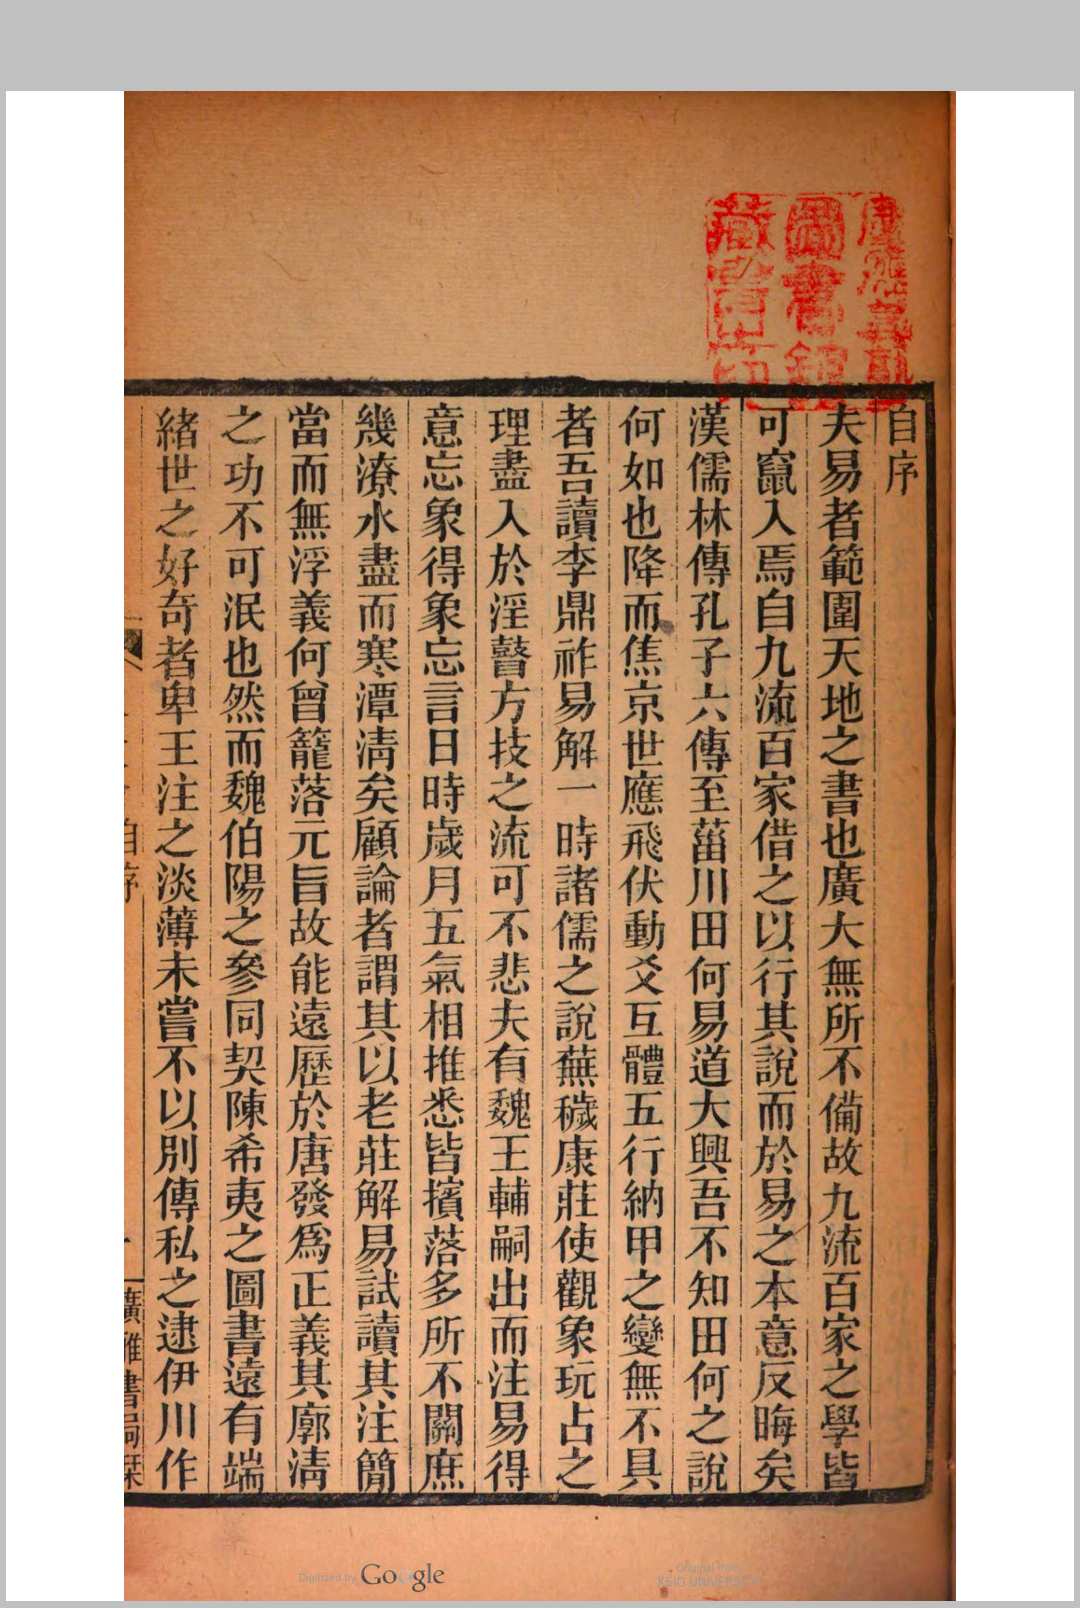 自序
夫易者範圍天地之書也廣大無所不備故九流百家之學皆
可竄入焉自九流百家借之以行其說而於易之本意反晦矣
漢儒林傳孔子六傳至菑川田何易道大興吾不知田何之說
何如也降而焦京世應飛伏動爻互體五行納甲之變無不具
者吾讀李鼎祚易解一時諸儒之說蕪穢康莊使觀象玩占之
理盡入於淫瞽方技之流可不悲夫有魏王輔嗣出而注易得
意忘象得象忘言日時歲月五氣相推悉皆擯落多所不關庶
幾潦水盡而寒潭清矣顧論者謂其以老莊解易試讀其注簡
當而無浮義何曾籠落元旨故能遠歷於唐發爲正義其廓清
之功不可泯也然而魏伯陽之參同契陳希夷之圖書遠有端
緒世之好奇者卑王注之淡薄未嘗不以別傳私之逮伊川作
自序
廣雅書局栞
圖書館
藏書印
Digitized by Google
Original from
KEIO UNIVERSITY